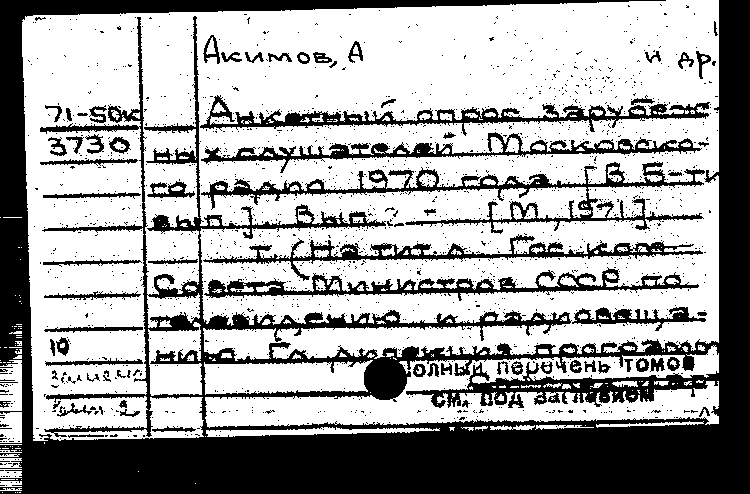 Акимов, А
и др.
71-50к
Анкетный опрос зарубеж-
3730
ных слушателей Московско-
го радио 1970 года. [В 5-ти
вып.]. Вып. 2 - [М., 1971].
т. (На тит. л. Гос. ком.
Совета Министров СССР по
телевидению и радиовеща-
10
нию. Гл. дирекция программ
Замена
полный перечень томов
см. под заглавием